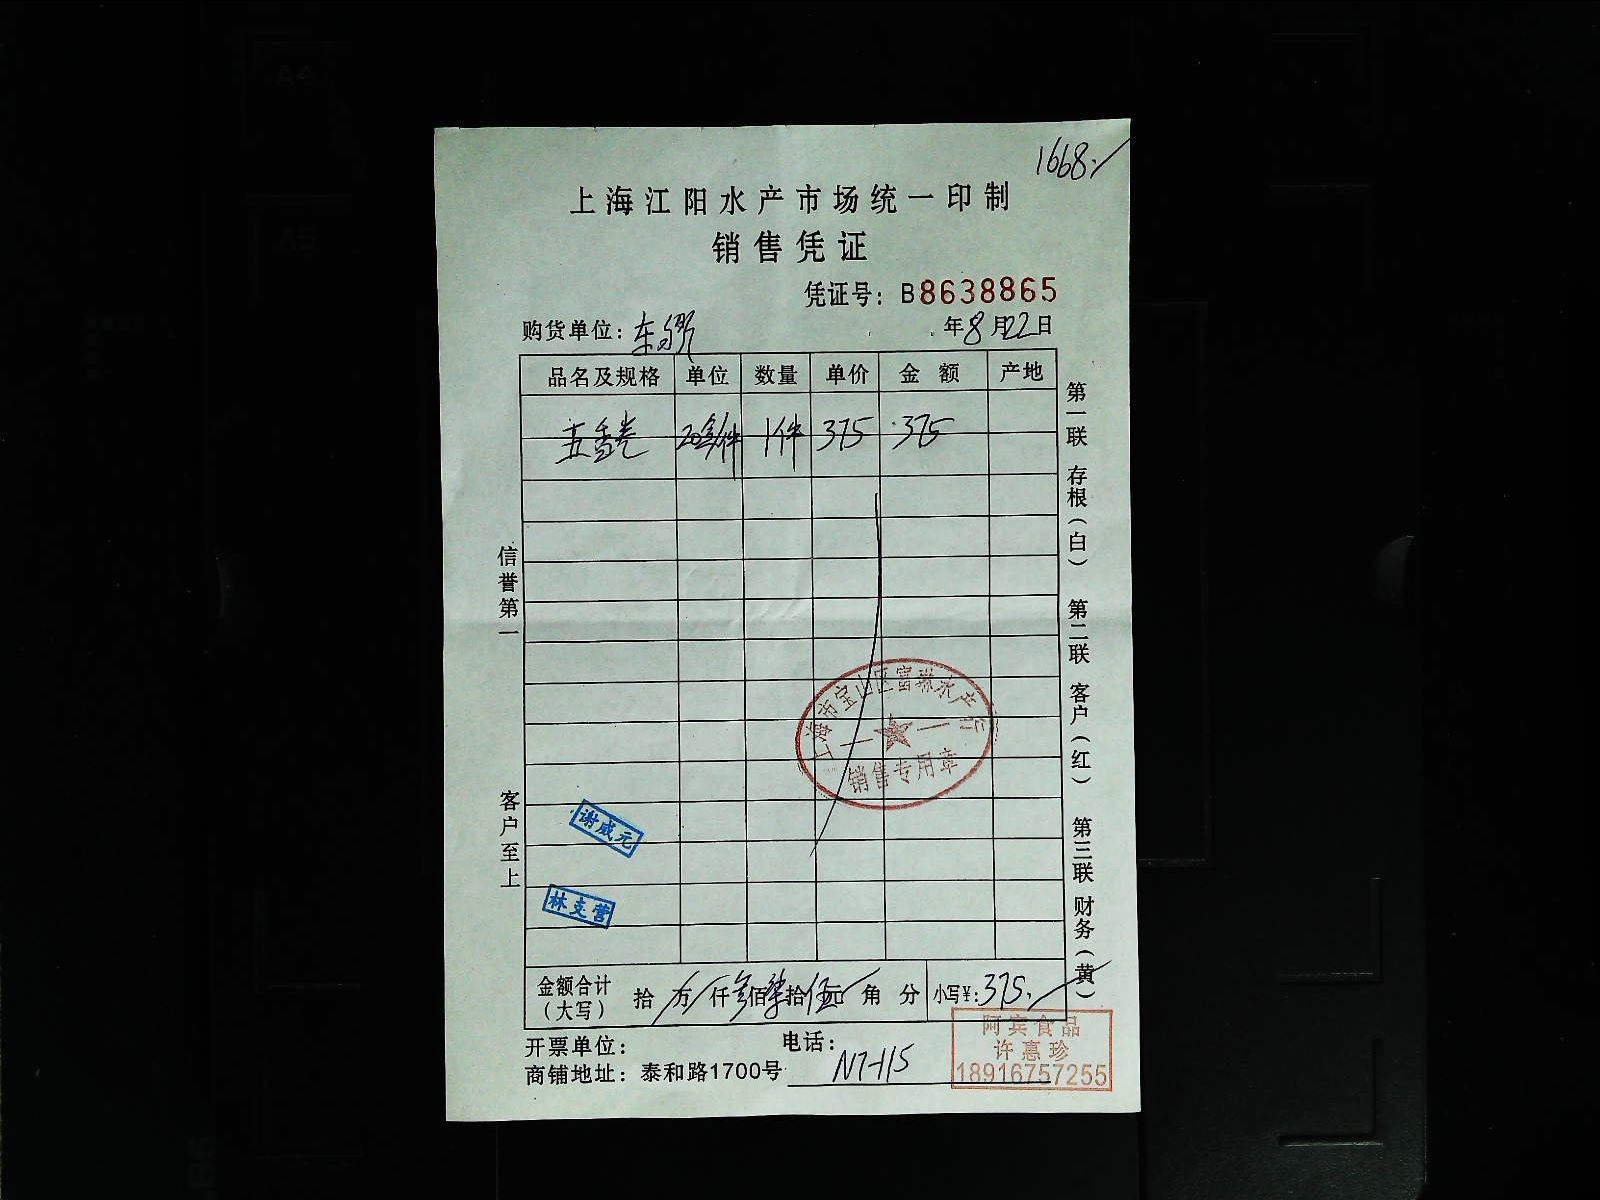 1668.
上海江阳水产市场统一印制
销售凭证
凭证号: B8638865
购货单位:
年8月22日
品名及规格 单位 数量 单价 金额 产地
五香卷 20包/件 1件 375 375
信誉第一
客户至上
第一联 存根(白) 第二联 客户(红) 第三联 财务(黄)
上海市宝山区富琳水产行
销售专用章
谢成元
林支营
金额合计(大写) 拾 万 仟 叁佰 柒拾 伍元 角 分 小写¥: 375.
开票单位: 电话:
商铺地址: 泰和路1700号 N7-115
阿宾食品
许惠珍
18916757255
A4
A5